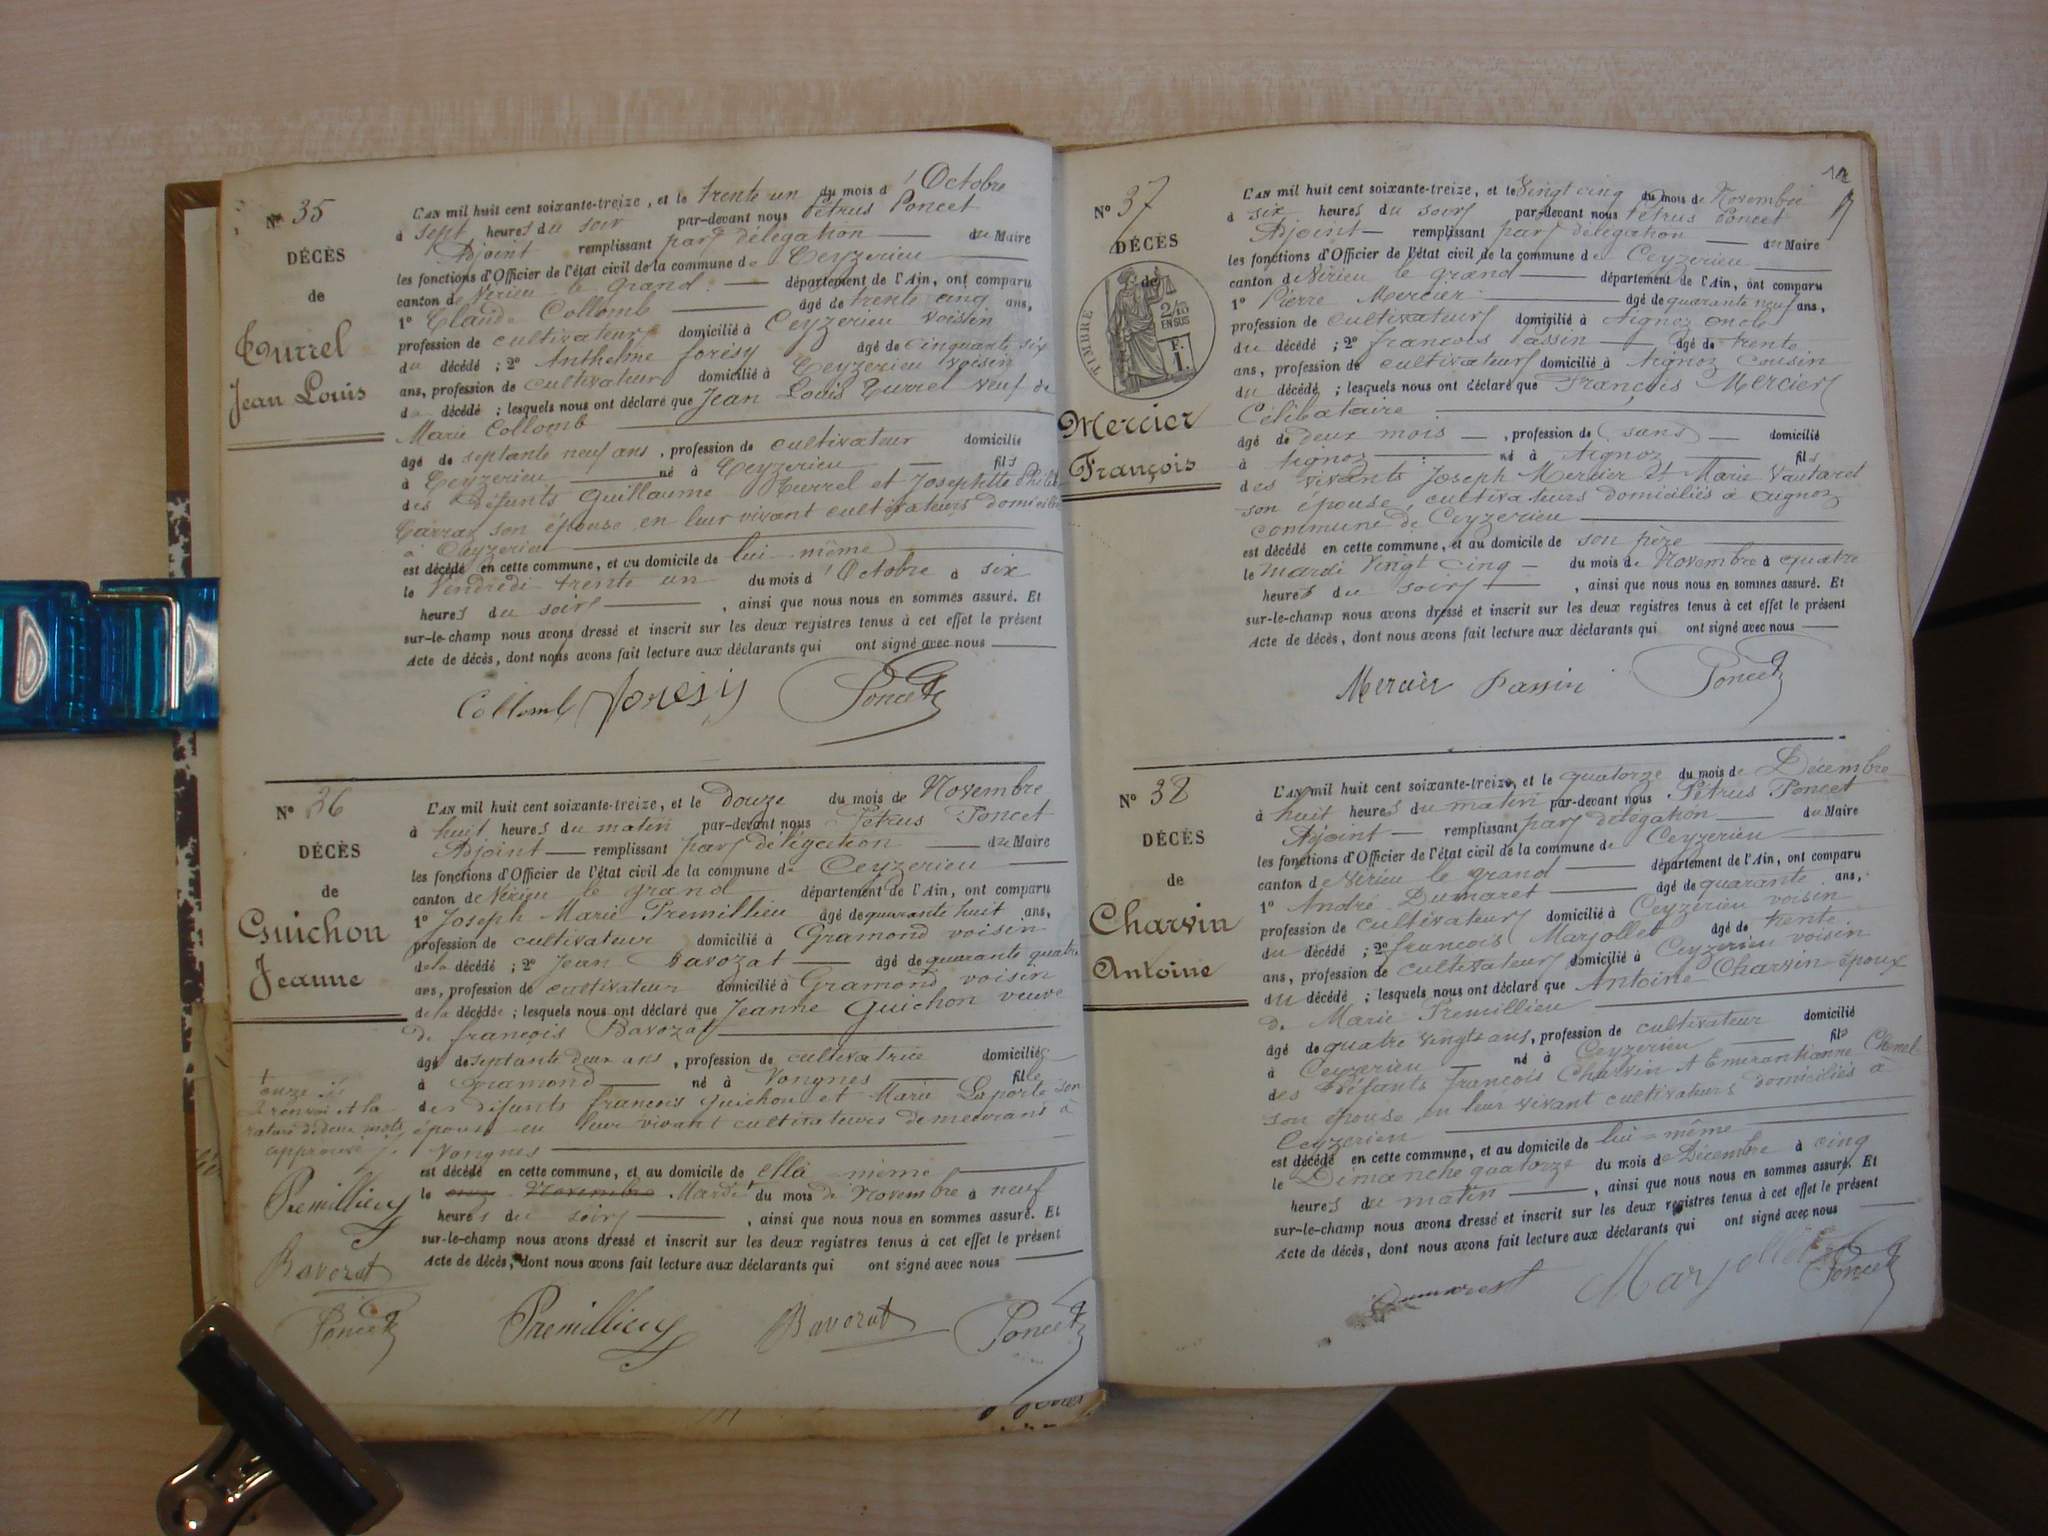 N° 35
DÉCÈS
de
Turrel
Jean Louis
L'AN mil huit cent soixante-treize, et le trente un du mois d'Octobre
à sept heures du soir par-devant nous Pétrus Poncet
Adjoint remplissant par délégation du Maire
les fonctions d'Officier de l'état civil de la commune de Ceyzerieu
canton de Virieu le grand département de l'Ain, ont comparu
1° Claude Collomb âgé de trente cinq ans,
profession de cultivateur domicilié à Ceyzerieu voisin
du décédé ; 2° Anthelme forésy âgé de cinquante six
ans, profession de cultivateur domicilié à Ceyzerieu voisin
du décédé ; lesquels nous ont déclaré que Jean Louis Turrel veuf de
Marie Collomb
âgé de septante neuf ans, profession de cultivateur domicilié
à Ceyzerieu né à Ceyzerieu fils
des défunts Guillaume Turrel et Josephte
son épouse en leur vivant cultivateurs domiciliés
à Ceyzerieu
est décédé en cette commune, et au domicile de lui même
le Vendredi trente un du mois d'Octobre à six
heures du soir, ainsi que nous nous en sommes assuré. Et
sur-le-champ nous avons dressé et inscrit sur les deux registres tenus à cet effet le présent
Acte de décès, dont nous avons fait lecture aux déclarants qui ont signé avec nous
Collomb foresy Poncet
N° 36
DÉCÈS
de
Guichon
Jeanne
L'AN mil huit cent soixante-treize, et le Douze du mois de Novembre
à huit heures du matin par-devant nous Pétrus Poncet
Adjoint remplissant par délégation du Maire
les fonctions d'Officier de l'état civil de la commune de Ceyzerieu
canton de Virieu le grand département de l'Ain, ont comparu
1° Joseph Marie Premillieu âgé de quarante huit ans,
profession de cultivateur domicilié à Gramond voisin
de la décédé ; 2° Jean Bavozat âgé de quarante quatre
ans, profession de cultivateur domicilié à Gramond voisin
de la décédée ; lesquels nous ont déclaré que Jeanne Guichon veuve
de françois Bavozat
âgé de septante deux ans, profession de cultivatrice domiciliée
à Gramond né à Vongnes fille
des défunts françois Guichon et Marie Laporte son
épouse en leur vivant cultivateurs demeurant à
Vongnes
est décédé en cette commune, et au domicile de elle même
le onze Novembre Mardi + du mois de Novembre à neuf
heures du soir, ainsi que nous nous en sommes assuré. Et
sur-le-champ nous avons dressé et inscrit sur les deux registres tenus à cet effet le présent
Acte de décès, dont nous avons fait lecture aux déclarants qui ont signé avec nous
+ onze
renvoi et la
rature de deux mots
approuvé
Premillieu
Bavozat
Poncet
Premillieu Bavozat Poncet
12
N° 37
DÉCÈS
de
TIMBRE
2/10
EN SUS
F.
1.
Mercier
François
L'AN mil huit cent soixante-treize, et le Vingt cinq du mois de Novembre
à six heures du soir par-devant nous Pétrus Poncet
Adjoint remplissant par délégation du Maire
les fonctions d'Officier de l'état civil de la commune de Ceyzerieu
canton de Virieu le grand département de l'Ain, ont comparu
1° Pierre Mercier âgé de quarante neuf ans,
profession de cultivateur domicilié à Aignoz oncle
du décédé ; 2° francois Passin âgé de trente
ans, profession de cultivateur domicilié à Aignoz cousin
du décédé ; lesquels nous ont déclaré que François Mercier
Célibataire
âgé de deux mois, profession de (sans) domicilié
à Aignoz né à Aignoz fils
des vivants Joseph Mercier et Marie Vautaret
son épouse, cultivateurs domiciliés à aignoz
commune de Ceyzerieu
est décédé en cette commune, et au domicile de son père
le mardi Vingt cinq du mois de Novembre à quatre
heures du soir, ainsi que nous nous en sommes assuré. Et
sur-le-champ nous avons dressé et inscrit sur les deux registres tenus à cet effet le présent
Acte de décès, dont nous avons fait lecture aux déclarants qui ont signé avec nous
Mercier Passin Poncet
N° 38
DÉCÈS
de
Charvin
Antoine
L'AN mil huit cent soixante-treize, et le quatorze du mois de Décembre
à huit heures du matin par-devant nous Pétrus Poncet
Adjoint remplissant par délégation du Maire
les fonctions d'Officier de l'état civil de la commune de Ceyzerieu
canton de Virieu le grand département de l'Ain, ont comparu
1° André Dumaret âgé de quarante ans,
profession de cultivateur domicilié à Ceyzerieu voisin
du décédé ; 2° françois Marjollet âgé de trente
ans, profession de cultivateur domicilié à Ceyzerieu voisin
du décédé ; lesquels nous ont déclaré que Antoine Charvin époux
de Marie Premillieu
âgé de quatre vingts ans, profession de cultivateur domicilié
à Ceyzerieu né à Ceyzerieu fils
des Défunts françois Charvin et Emerantianne
son épouse en leur vivant cultivateurs domiciliés à
Ceyzerieu
est décédé en cette commune, et au domicile de lui=même
le Dimanche quatorze du mois de Décembre à cinq
heures du matin, ainsi que nous nous en sommes assuré. Et
sur-le-champ nous avons dressé et inscrit sur les deux registres tenus à cet effet le présent
Acte de décès, dont nous avons fait lecture aux déclarants qui ont signé avec nous
Dumarest Marjollet Poncet